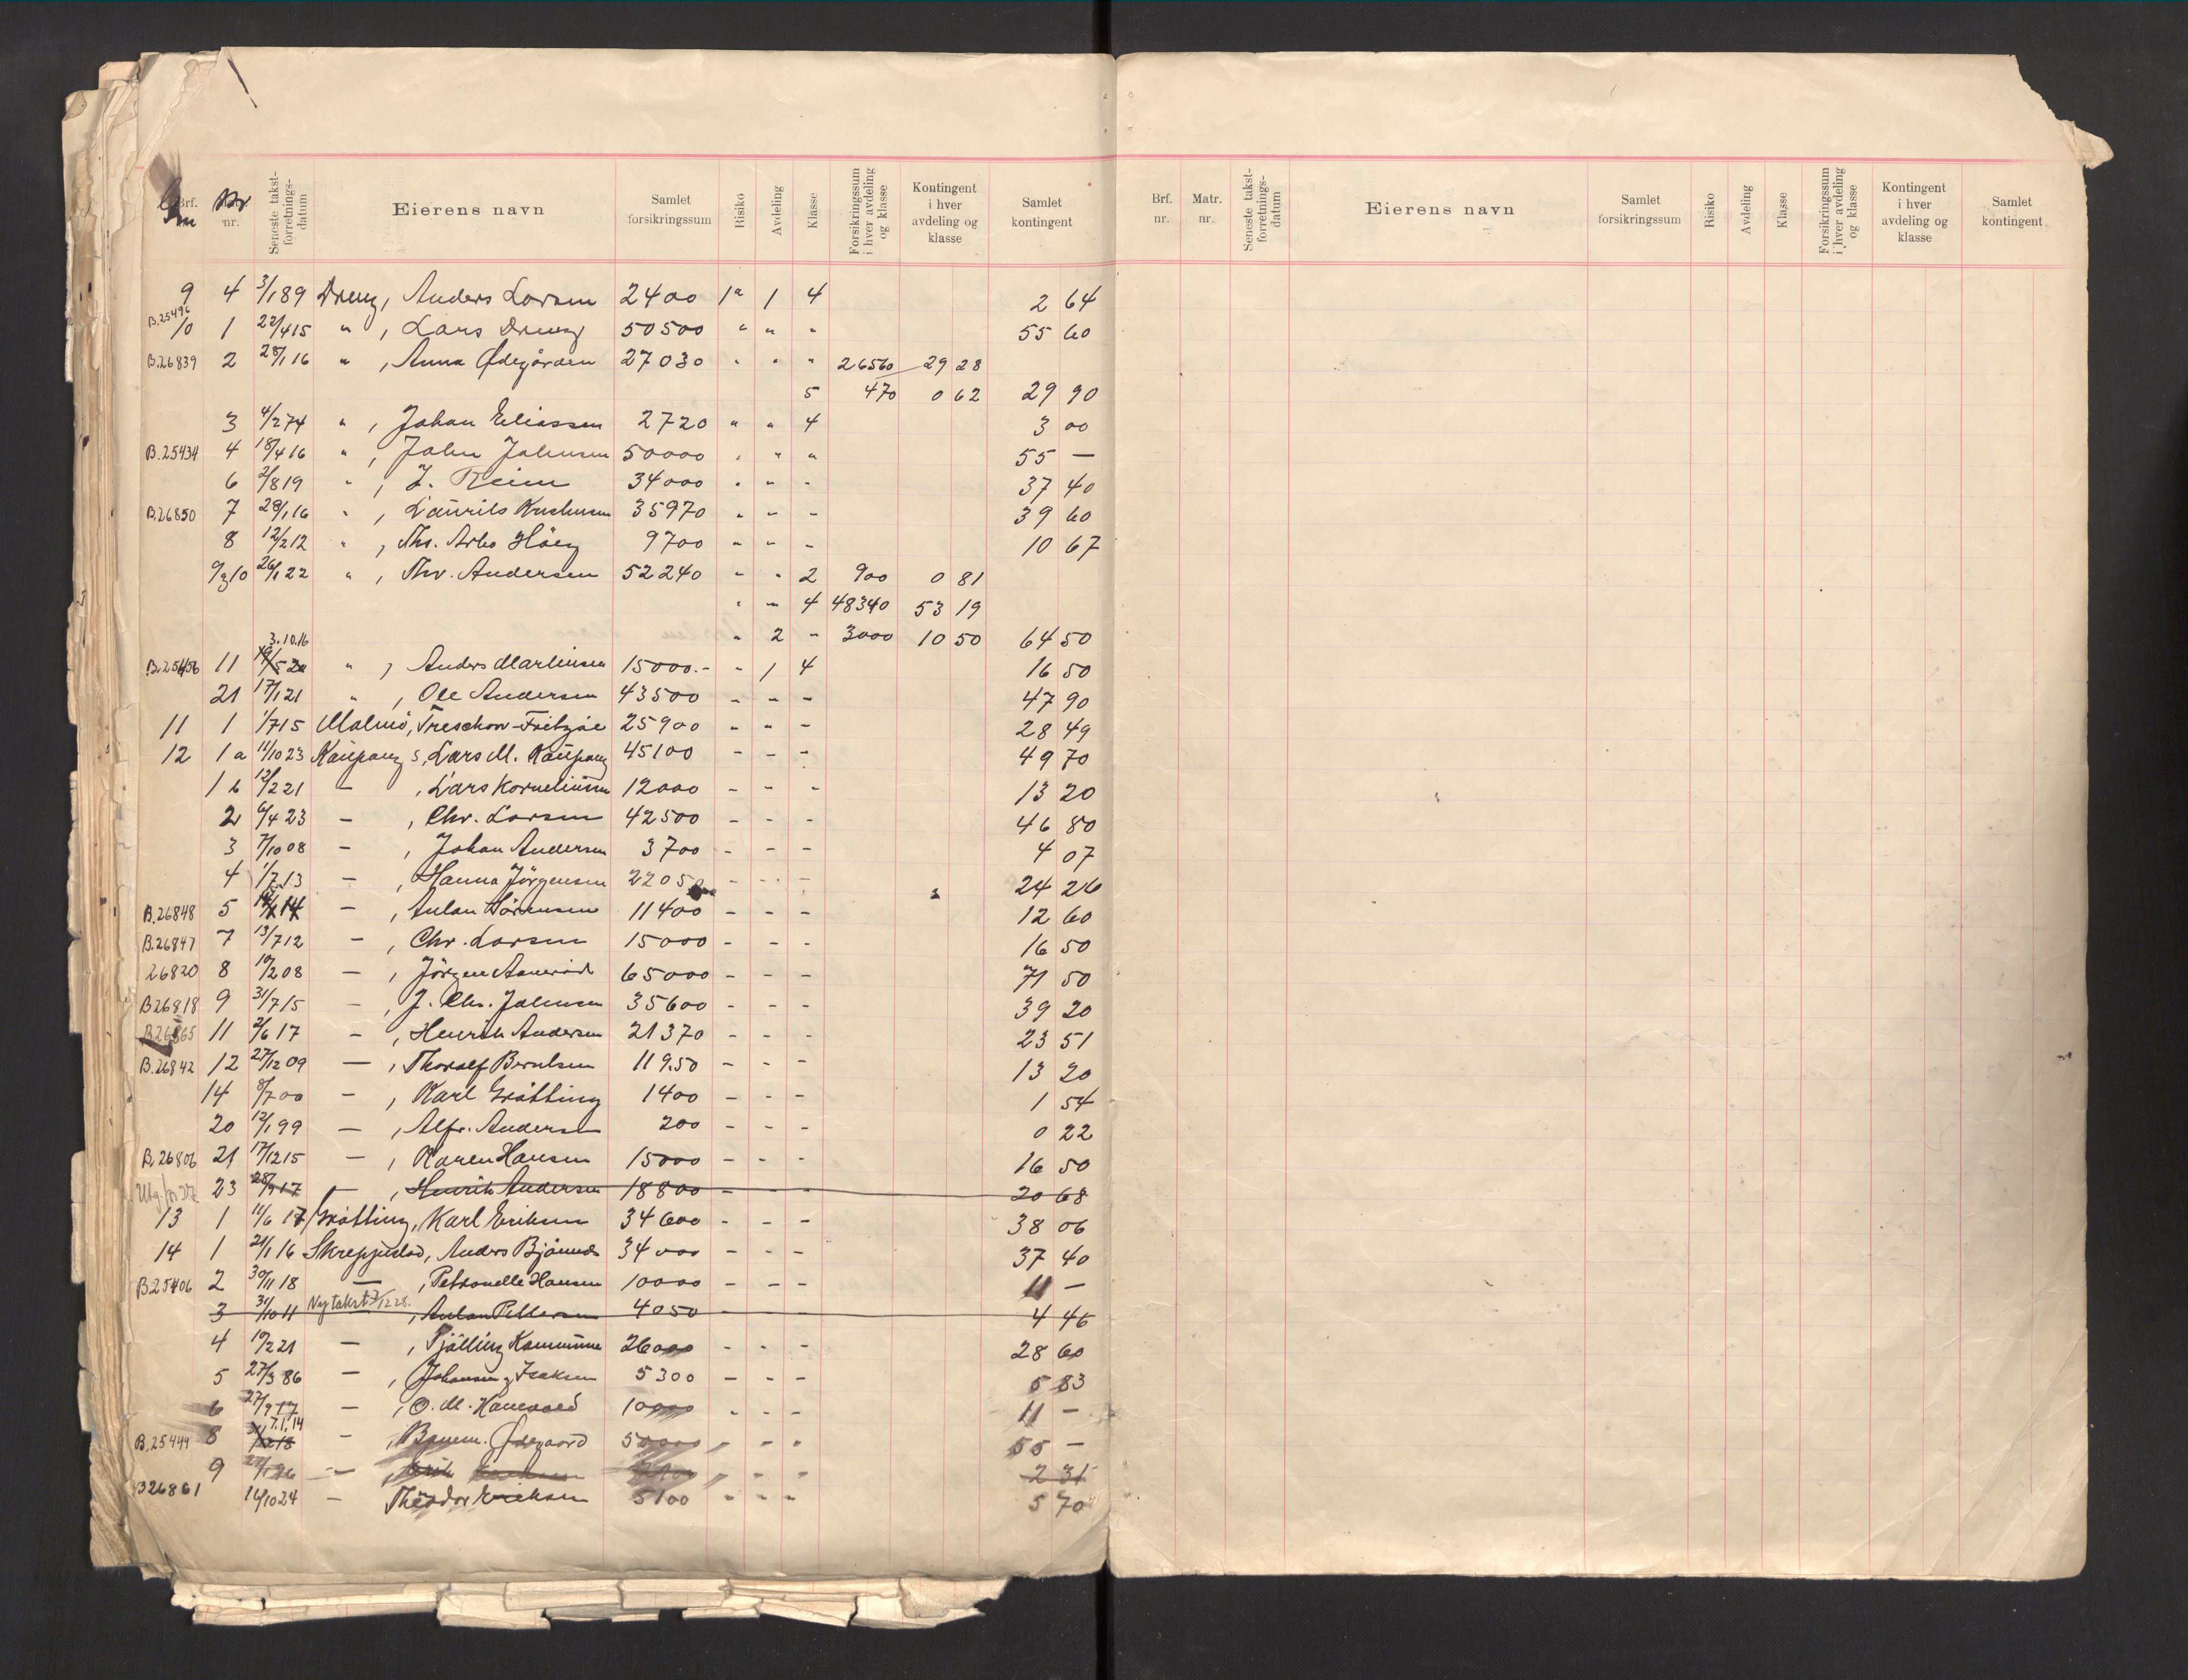 Gnr. Brf. Br. nr. Seneste takst-forretnings-datum Eierens navn Samlet forsikringssum Risiko Avdeling Klasse Forsikringssum i hver avdeling og klasse Kontingent i hver avdeling og klasse Samlet kontingent
9 4 3/1 89 Dreng, Anders Larsen 2400 1a 1 4 2 64
B.25496
10 1 22/4 15 " , Lars Dreng 50500 " " " 55 60
B.26839 2 28/1 16 " , Anna Ødegården 27030 " " " 26560 29 28
5 470 0 62 29 90
3 4/2 74 " , Johan Eliassen 2720 " " 4 3 00
B.25434 4 18/4 16 " , John Johnsen 50000 " " " 55 —
6 2/8 19 " , J. Reim 34000 " " " 37 40
B.26850 7 28/1 16 " , Laurits 35970 " – – 39 60
8 12/2 12 " , Ths. Arbo Höeg 9700 " – – 10 67
9,10 26/1 22 " , Thv. Andersen 52240 – " 2 900 0 81
" – 4 48340 53 19
" 2 – 3000 10 50 64 50
3.10.16
B.25456 11 " , Anders Martinsen 15000.– " 1 4 16 50
21 17/1 21 " , Ole Andersen 43500 – – – 47 90
11 1 1/7 15 Malmö, Treschow-Fritzöe 25900 – – – 28 49
12 1a 11/10 23 Kaupang s, Lars M. Kaupang 45100 – – – 49 70
1b 12/2 21 – , Lars Korneliussen 12000 – – – 13 20
2 6/4 23 – , Chr. Larsen 42500 – – – 46 80
3 7/10 08 – , Johan Andersen 3700 – – – 4 07
4 1/7 13 – , Hanna Jörgensen 22050 – – – 24 26
B.26848 5 – , Anton Sörensen 11400 – – – 12 60
B.26847 7 13/7 12 – , Chr. Larsen 15000 – – – 16 50
26820 8 19/2 08 – , Jörgen 65000 – – – 71 50
B26818 9 31/7 15 – , J. Chr. Johnsen 35600 – – – 39 20
B26865 11 2/6 17 – , Henrik Andersen 21370 – – – 23 51
B.26842 12 27/12 09 — , Thoralf Berntsen 11950 – – – 13 20
14 8/7 00 – , Karl Gråtting 1400 – – – 1 54
20 12/1 99 — , Alfr. Andersen 200 – – – 0 22
B.26806 21 17/12 15 — , Karen Hansen 15000 – – – 16 50
23 28/9 17 – , Henrik Andersen 18800 – – – 20 68
13 1 11/6 17 Gråtting, Karl Eriksen 34600 – – – 38 06
14 1 21/1 16 Skreppestad, Anders Bjönnes 34000 – – – 37 40
B25406 2 30/11 18 — , Petronelle Hansen 10000 – – – 11 —
3 31/10 11 Ny takst 3/12 28. , Anton Pettersen 4050 4 46
4 19/2 21 — , Tjölling Kommune 26000 – – – 28 60
5 27/3 86 — , Johansen & Isaksen 5300 – – – 5 83
6 27/9 17 — , O. M. Hanevold 10000 – – – 11 —
7.1.14
B.25449 8 – , Ødegaard 50000 – – " 55 —
9 — , – – " 2 31
B26861 16/10 24 – Theodor Eriksen 5100 – – – 5 70
Brf. nr. Matr. nr. Seneste takst-forretnings-datum Eierens navn Samlet forsikringssum Risiko Avdeling Klasse Forsikringssum i hver avdeling og klasse Kontingent i hver avdeling og klasse Samlet kontingent